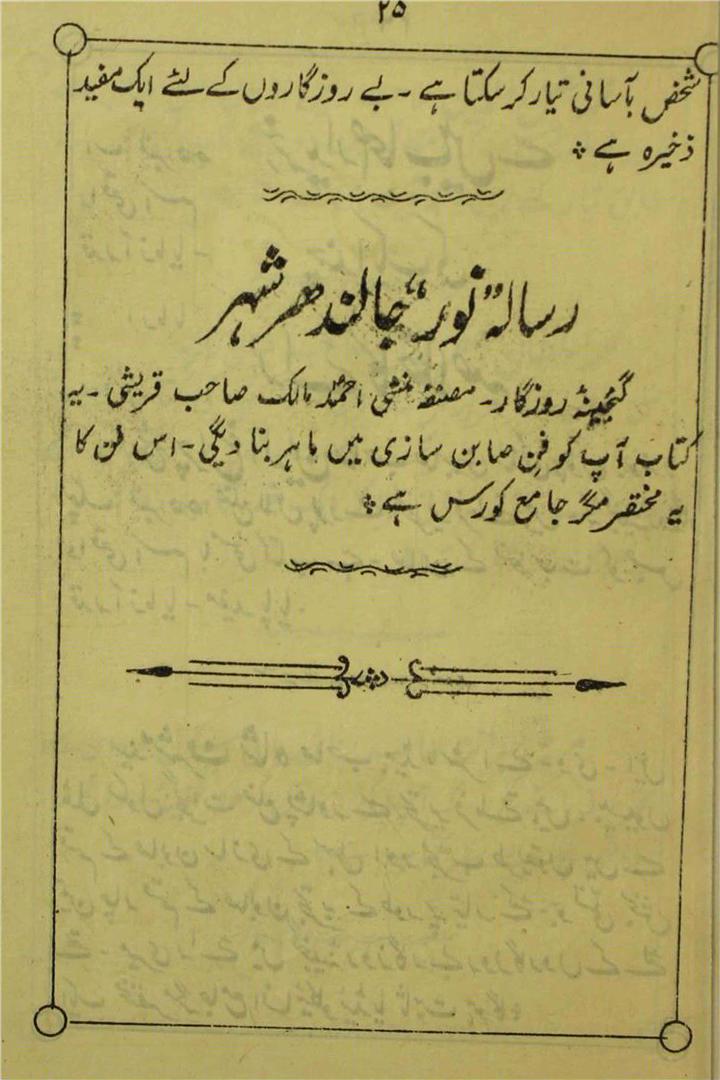 ۲۵
شخص بآسانی تیار کر سکتا ہے ۔ بے روزگاروں کے لئے ایک مفید
ذخیرہ ہے ؞
رسالہ ”نور“ جالندھر شہر
گنجینۂ روزگار ۔ مصنفہ منشی احمد مالک صاحب قریشی ۔ یہ
کتاب آپ کو فنِ صابن سازی میں ماہر بنا دیگی ۔ اس فن کا
یہ مختصر مگر جامع کورس ہے ؞